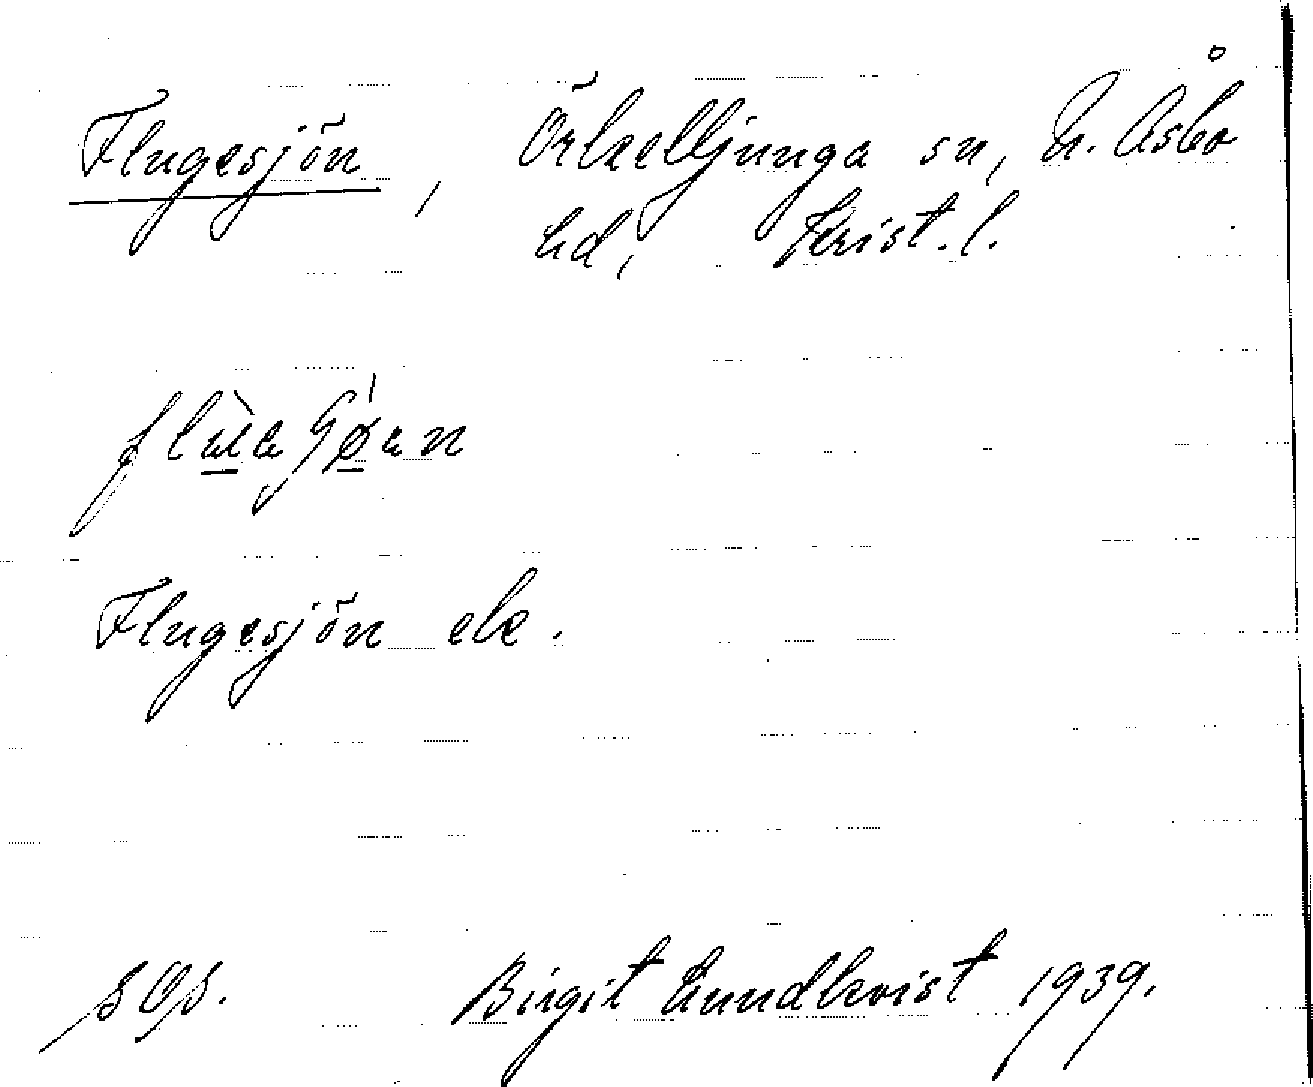 Flugesjön, Örkelljunga sn, N. Åsbo
hd, Krist. l.
Flugesjön ek.
Birgit Lundkvist 1939.